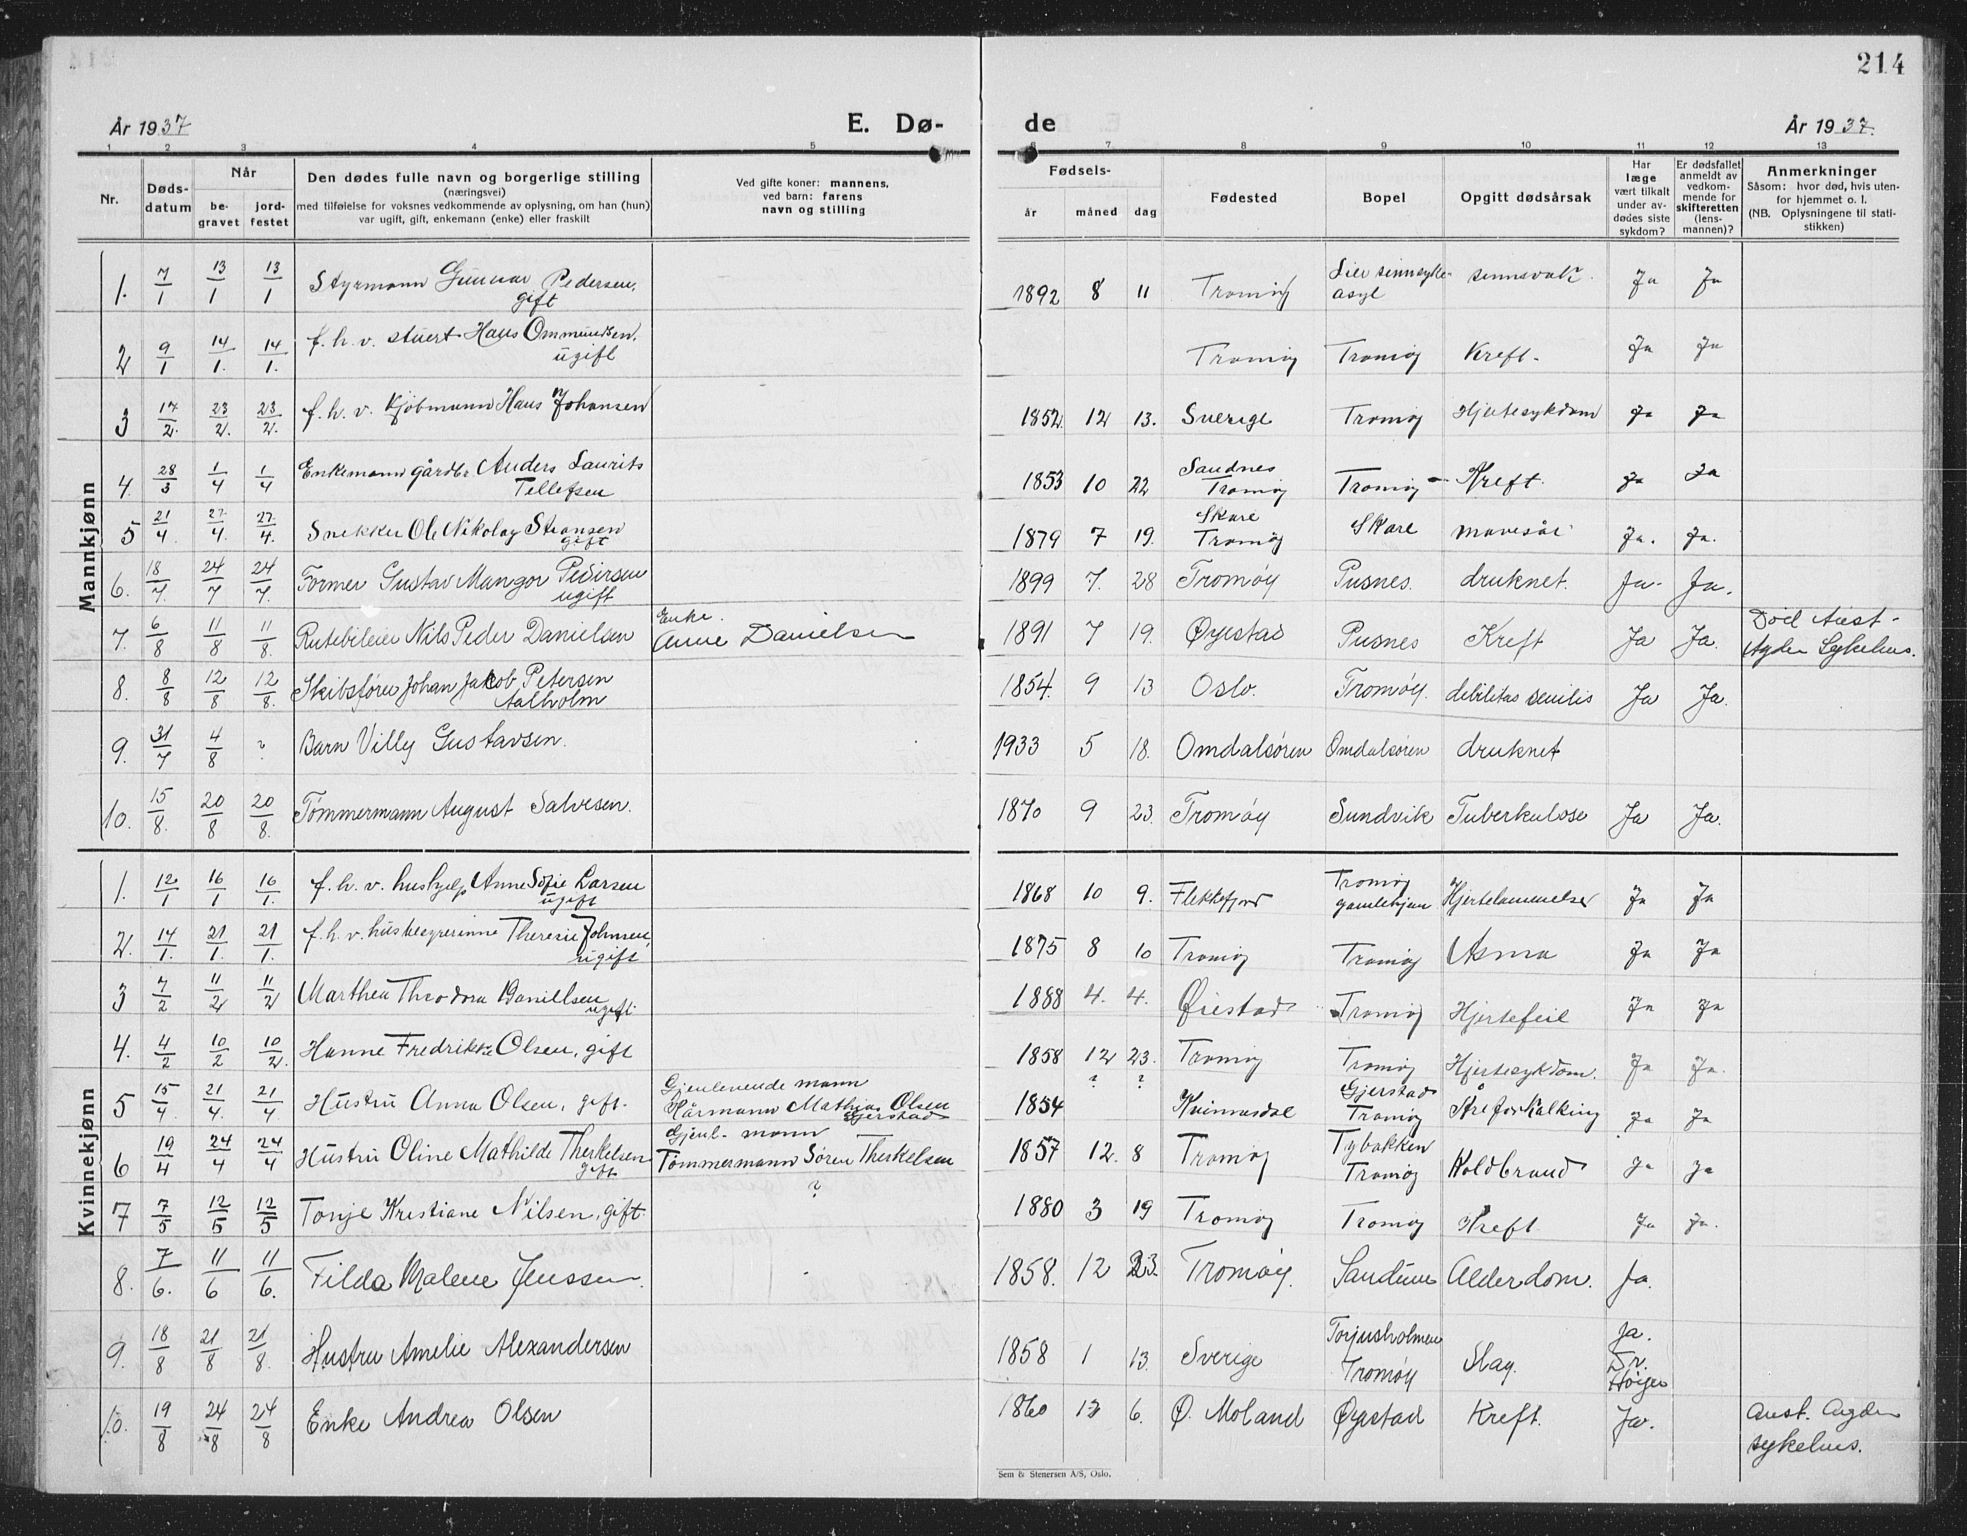 214
År 1937
E. Dø-
de
År 1937.
1 2 3 4 5 6 7 8 9 10 11 12 13
Nr.
Døds-
datum
Når
be-
gravet
jord-
festet
Den dødes fulle navn og borgerlige stilling
(næringsvei)
med tilføielse for voksnes vedkommende av oplysning, om han (hun)
var ugift, gift, enkemann (enke) eller fraskilt
Ved gifte koner: mannens,
ved barn: farens
navn og stilling
Fødsels-
år
måned
dag
Fødested
Bopel
Opgitt dødsårsak
Har
læge
vært tilkalt
under av-
dødes siste
sykdom?
Er dødsfallet
anmeldt av
vedkom-
mende for
skifteretten
(lens-
mannen)?
Anmerkninger
Såsom: hvor død, hvis uten-
for hjemmet o. l.
(NB. Oplysningene til stati-
stikken)
Mannkjønn
1. 7/1 13/1 13/1 Styrmann Gunnar Pedersen, gift 1892 8 11 Tromøy Lier sinnsyke-asyl sinnsvak Ja Ja
2 9/1 14/1. 14/1. f. h. v. stuert Hans Ommundsen, ugift Tromøy Tromøy Kreft. Ja Ja
3 17/2. 23/2. 23/2. f. h. v. Kjøbmann Hans Johansen 1852 12 13. Sverige Tromøy Hjertesykdom Ja Ja
4. 28/3 1/4 1/4 Enkemann gårdbr Anders Laurits Tellefsen 1853 10 22 Sandnes Tromøy Tromøy Kreft. Ja Ja
5 21/4. 27/4. 27/4. Snekker Ole Nikolay gift 1879 7 19. Skare Tromøy Skare mavesår Ja. Ja.
6. 18/7. 24/7 24/7. Former Gustav Mangor Pedersen ugift 1899 7. 28 Tromøy Pusnes. druknet. Ja. Ja.
7. 6/8 11/8 11/8. Rutebileier Nils Peder Danielsen Enke. Anne Danielsen 1891 7 19. Øyestad Pusnes Kreft Ja Ja. Død Aust-Agder Sykehus.
8. 8/8 12/8 12/8. Skibsfører Johan Jakob Petersen Aalholm 1854. 9 13 Oslo. Tromøy. debilitas senilis Ja Ja.
9. 31/7 4/8 ? Barn Villy Gustavsen. 1933 5 18. Omdalsøren Omdalsøren druknet
10. 15/8. 20/8 20/8. Tømmermann August Salvesen. 1870 9 23. Tromøy Sundvik Tuberkulose Ja Ja.
Kvinnekjønn
1. 12/1 16/1 16/1. f. h. v. hushjelp Anne Sofie Larsen ugift 1868 10 9. Flekkefjord Tromøy gamlehjem Hjertelammelse Ja Ja
2. 14/1. 21/1. 21/1. f. h. v. husbestyrerinne Therese Johnsen, ugift 1875 8 10 Tromøy Tromøy Asma Ja Ja
3 7/2 11/2 11/2 Marthea Theodora Daniellsen ugift. 1888 4. 4. Øiestad Tromøy Hjertefeil Ja Ja
4. 4/2 10/2 10/2. Hanne Fredrikke Olsen, gift 1858 12 23. Tromøy Tromøy Hjertesykdom. Ja Ja.
5 15/4. 21/4. 21/4 Hustru Anna Olsen, gift. Gjenlevende mann Mathias Olsen Gjerstad 1854 ? ? Kvinnesdal Gjerstad Tromøy Åreforkalking Ja Ja
6 19/4 24/4 24/4 Hustru Oline Mathilde Therkelsen gift Gjenl. mann Tømmermann Søren Therkelsen 1857 12. 8 Tromøy Tybakken Tromøy Koldbrand Ja Ja
7 7/5 12/5 12/5 Tonje Kristiane Nilsen, gift ? 1880 3 19 Tromøy Tromøy Kreft Ja Ja.
8. 7/6. 11/6 11/6. Tilda Malene Jenssen. 1858. 12 23. Tromøy. Sandum Alderdom. Ja.
9. 18/8 21/8 21/8. Hustru Amelie Alexandersen 1858 1 13. Sverige Torjusholmen Tromøy Slag. Ja. Dr.
10. 19/8 24/8 24/8 Enke Andrea Olsen 1860 12 6. Ø. Moland Øyestad Kreft. Ja. Aust. Agder sykehus.
Sem & Stenersen A/S, Oslo.